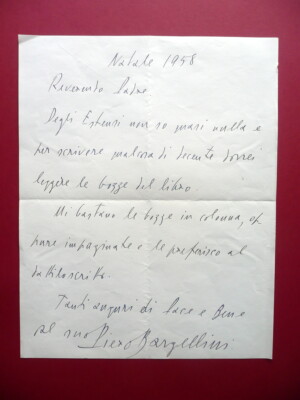 Natale 1958
Reverendo Padre,
Degli Estensi non so quasi nulla e
per scrivere qualcosa di decente dovrei
leggere le bozze del libro.
Mi bastano le bozze in colonna,
pure impaginate e le preferisco al
dattiloscritto.
Tanti auguri di Pace e Bene
dal suo Piero Bargellini